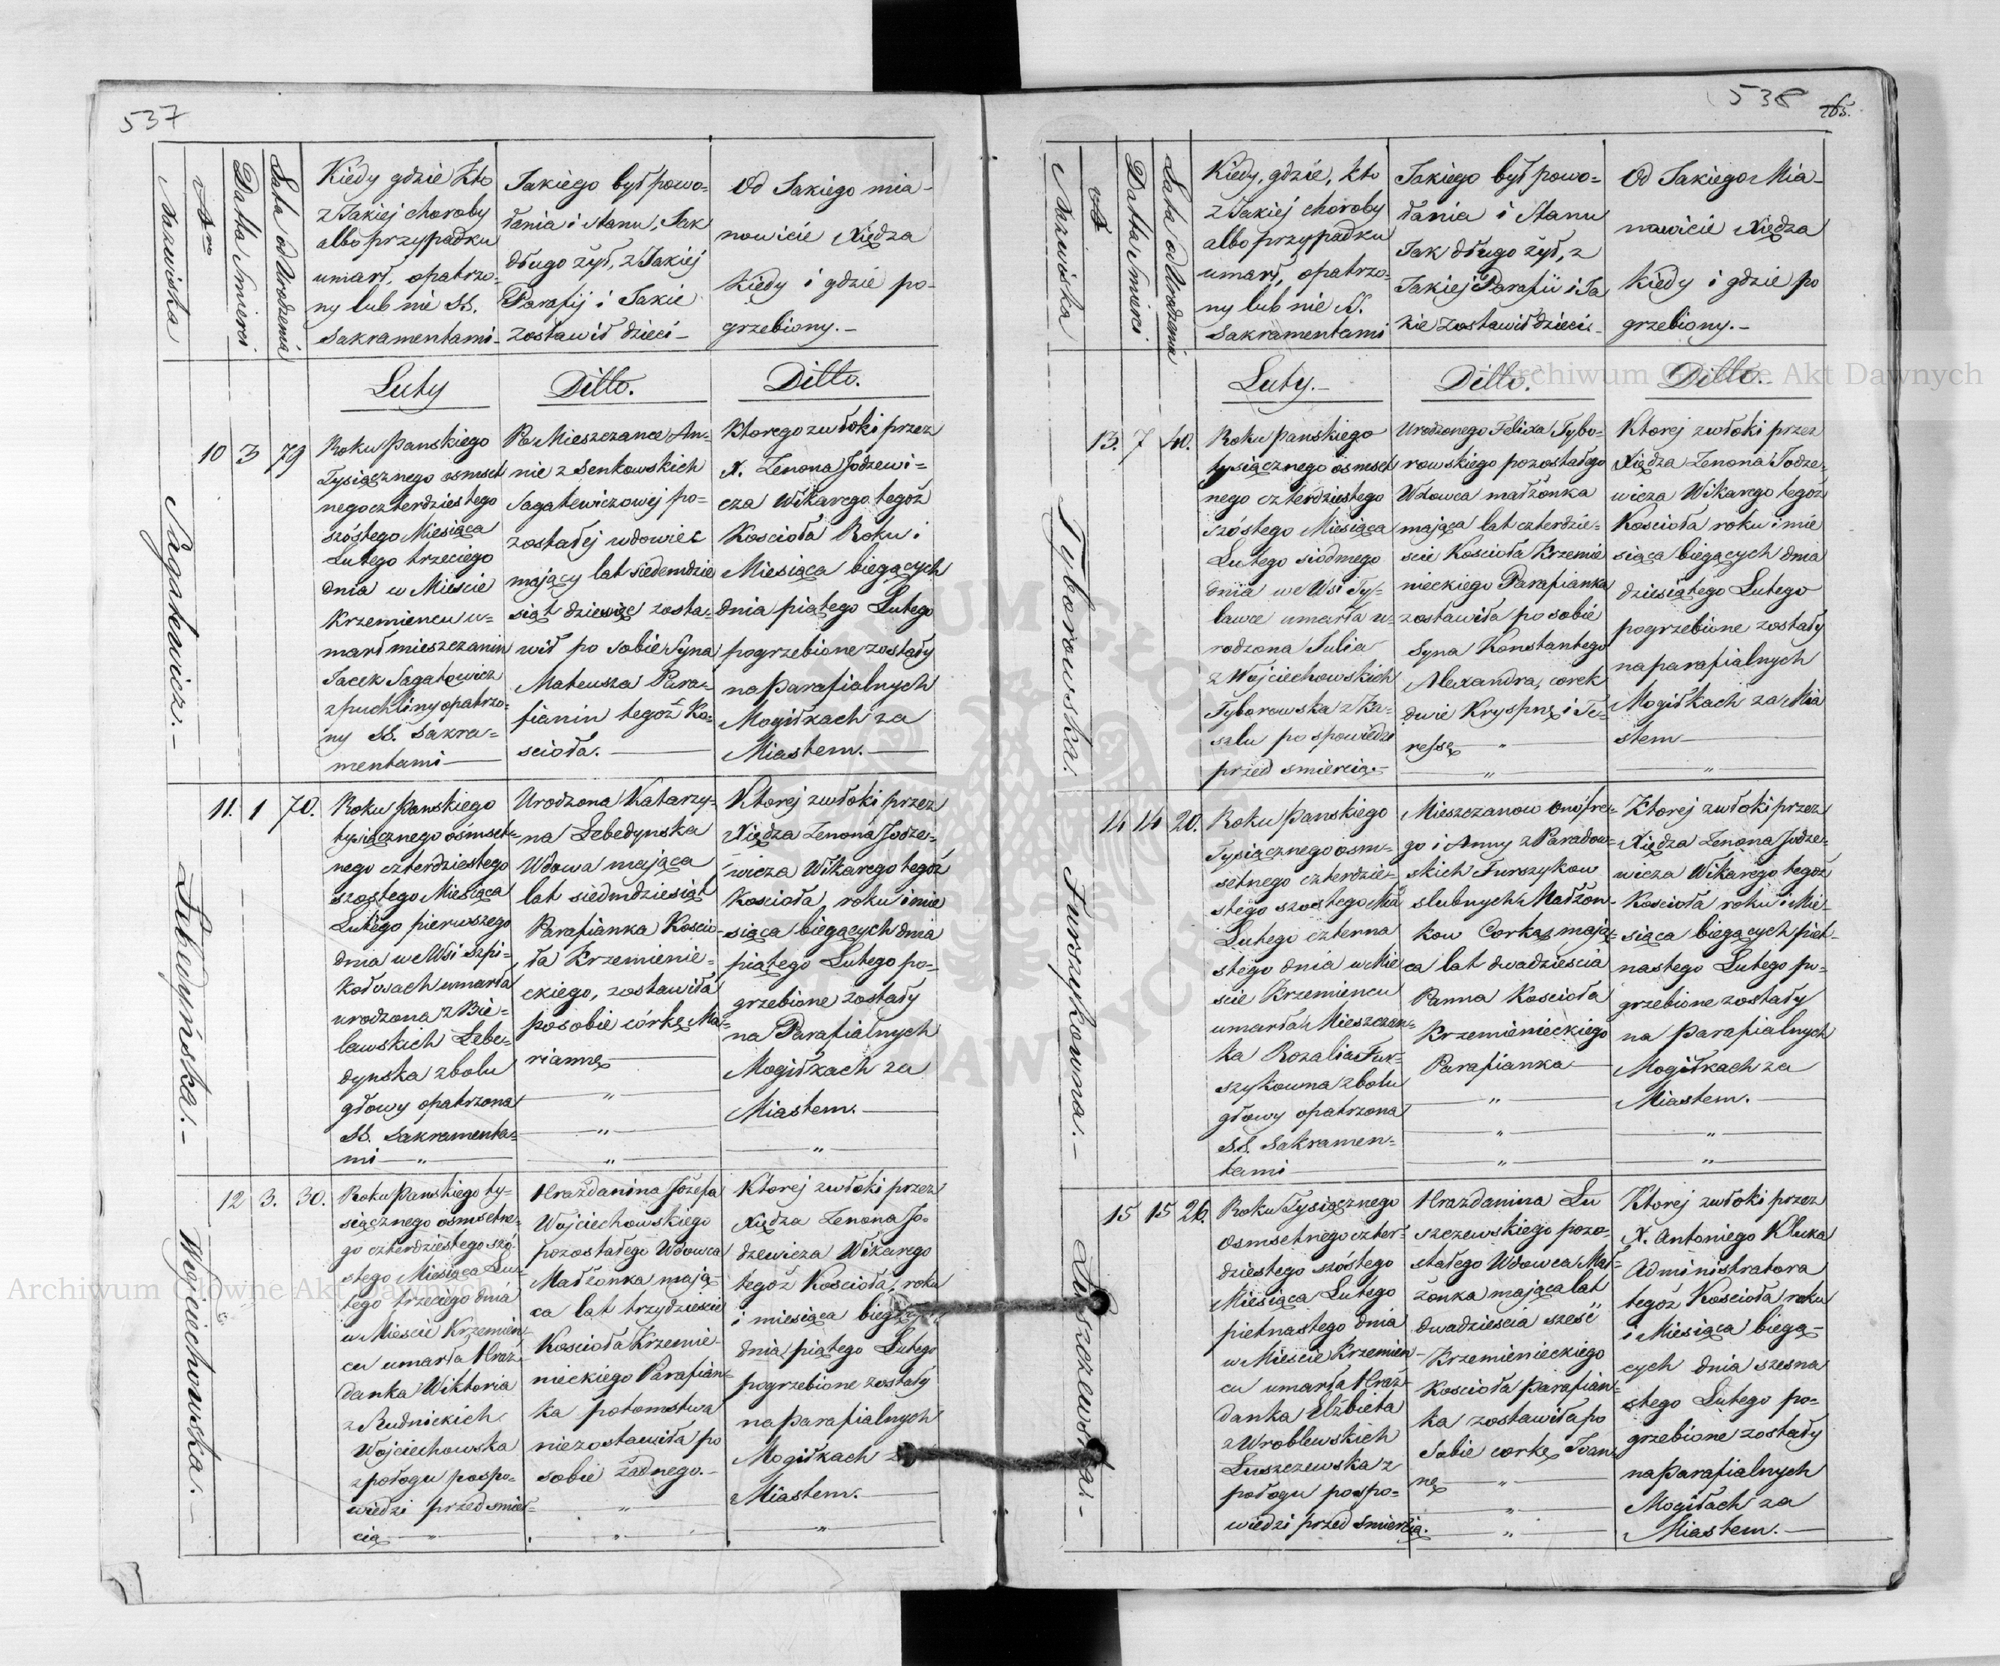 537
Nazwiska
Nro
Datta Smierci
Lata od Urodzenia
Kiedy gdzie kto
z Jakiej choroby
albo przypadku
umarł, opatrzo-
ny lub nie SS.
Sakramentami-
Jakiego był powo-
łania i stanu, Jak
długo żył, z Jakiej
Parafij i Jakie
zostawił dzieci-
Od Jakiego mia-
nowicie Xiędza
kiedy i gdzie po-
grzebiony.-
Luty
Ditto.
Ditto.
Sagatowicz.-
10
3
79
Roku Panskiego
Tysiącznego osmset
nego czterdziestego
szóstego Miesiąca
Lutego trzeciego
dnia w Mieście
Krzemiencu u-
marł mieszczanin
Jacek Sagatowicz
z puchliny opatrzo-
ny SS. Sakra-
mentami
Po Mieszczance An-
nie z Senkowskich
Sagatewiczowej po-
zostałej wdowiec
mający lat siedemdzie
siąt dziewięc zosta-
wił po sobie Syna
Mateusza Para-
fianin tegoż Ko-
scioła.
Ktorego zwłoki przez
X. Zenona Jodzewi-
cza Wikarego tegoż
Kosciołá Roku i
Miesiąca biegących
dnia piątego Lutego
pogrzebione zostały
na parafialnych
Mogiłkach za
Miastem.
Lebedyńska.-
11.
1
70.
Roku Panskiego
tysiącznego osmset-
nego czterdziestego
szostego Miesiąca
Lutego pierwszego
dnia w Wsi Szpi-
kołosach umarła
urodzona z Bie-
lawskich Lebe-
dynska z bolu
głowy opatrzona
SS. Sakramenta-
mi
Urodzona Katarzy-
na Lebedynska
Wdowa mająca
lat siedmdziesiąt
Parafianka Koscio-
ła Krzemienie-
ckiego, zostawiła
po sobie córkę Ma-
riannę
Ktorej zwłoki przez
Xiędza Zenona Jodze-
wicza Wikarego tegoż
Kościoła, roku i mie
siąca biegących dnia
piątego Lutego po-
grzebione zostały
na Parafialnych
Mogiłkach za
Miastem.
Woyciechowska.-
12
3.
30.
Roku Panskiego ty-
siącznego osmsetne-
go czterdziestego szó
stego Miesiąca Lu-
tego trzeciego dnia
w Mieście Krzemien
cu umarła Hraż
danka Wiktoria
z Rudnickich
Wojciechowska
z połogu po spo-
wiedzi przed smier-
cią
Hrażdanina Józefa
Wojciechowskiego
pozostałego Wdowca
Małżonka mają
ca lat trzydzieście
Kościoła Krzemie-
nieckiego Parafian-
ka potomstwa
niezostawiła po
sobie żadnego.-
Ktorej zwłoki przez
Xiędza Zenona Jo-
dzewicza Wikarego
tegoż Kościoła, roku
i miesiąca biegących
dnia piątego Lutego
pogrzebione zostały
na parafialnych
Mogiłkach za
Miastem.
538
265.
Nazwiska
Nro
Datta Smierci
Lata od Urodzenia
Kiedy, gdzie, kto
z Jakiej choroby
albo przypadku
umarł, opatrzo-
ny lub nie SS.
Sakramentami
Jakiego był powo-
łania i stanu
Jak długo żył, z
Jakiej Parafii i Ja
kie zostawił dzieci.-
Od Jakiego Mia-
nowicie Xiędza
kiedy i gdzie po
grzebiony.-
Luty.-
Ditto.
Ditto.
Tyborowska.
13.
7
40.
Roku panskiego
tysiącznego osmset
nego czterdziestego
szóstego Miesiąca
Lutego siodmego
dnia we Wsi Ty-
lawce umarła u-
rodzona Julia
z Wojciechowskich
Tyborowska z Ka-
szlu po spowiedzi
przed smiercią.-
Urodzonego Felixa Tybo-
rowskiego pozostałego
Wdowca małżonka
mająca lat czterdzie-
ście Kościoła Krzemie
nieckiego Parafianka
zostawiła po sobie
Syna Konstantego
Alexandra, corek
dwie Kryspnę i Te-
ressę
Ktorej zwłoki przez
Xiędza Zenona Jodze-
wicza Wikarego tegoż
Kościoła roku i mie
siąca biegących dnia
dziesiątego Lutego
pogrzebione zostały
na parafialnych
Mogiłkach za Mia
stem
Furszykowna.-
14
14
20.
Roku Panskiego
Tysiącznego osm-
setnego czterdzie-
stego szostego Mca
Lutego czterna
stego dnia w Mie
ście Krzemiencu
umarła Mieszczan-
ka Rozalia Fur-
szykowna z bolu
głowy opatrzona
S.S. Sakramen-
tami
Mieszczanow Onofre-
go i Anny z Paradow-
skich Furszykow
slubnych Małżon-
kow Corka, mają-
ca lat dwadziescia
Panna Kościoła
Krzemienieckiego
Parafianka
Ktorej zwłoki przez
Xiędza Zenona Jodze-
wicza Wikarego tegoż
Kościoła roku i Mie-
siąca biegących piet-
nastego Lutego po-
grzebione zostały
na parafialnych
Mogiłkach za
Miastem.
Łuszczewska.-
15
15
26.
Roku Tysiącznego
Osmsetnego czter-
dziestego szóstego
Miesiąca Lutego
pietnastego dnia
w Mieście Krzemien-
cu umarła Hraż
danka Elżbieta
z Wroblewskich
Łuszczewska z
połogu po spo-
wiedzi przed smiercią.
Hrażdanina Łu
szczewskiego pozo-
stałego Wdowca Mał-
żonka mająca lat
dwadziescia sześć
Krzemienieckiego
Kościoła Parafian-
ka zostawiła po
Sobie corkę Joan
nę
Ktorej zwłoki przez
X. Antoniego Kluka
Administratora
tegoż Kościoła roku
i Miesiąca biegą-
cych dnia szesna
stego Lutego po-
grzebione zostały
na parafialnych
Mogiłach za
Miastem.
Archiwum Główne Akt Dawnych
Archiwum Główne Akt Dawnych